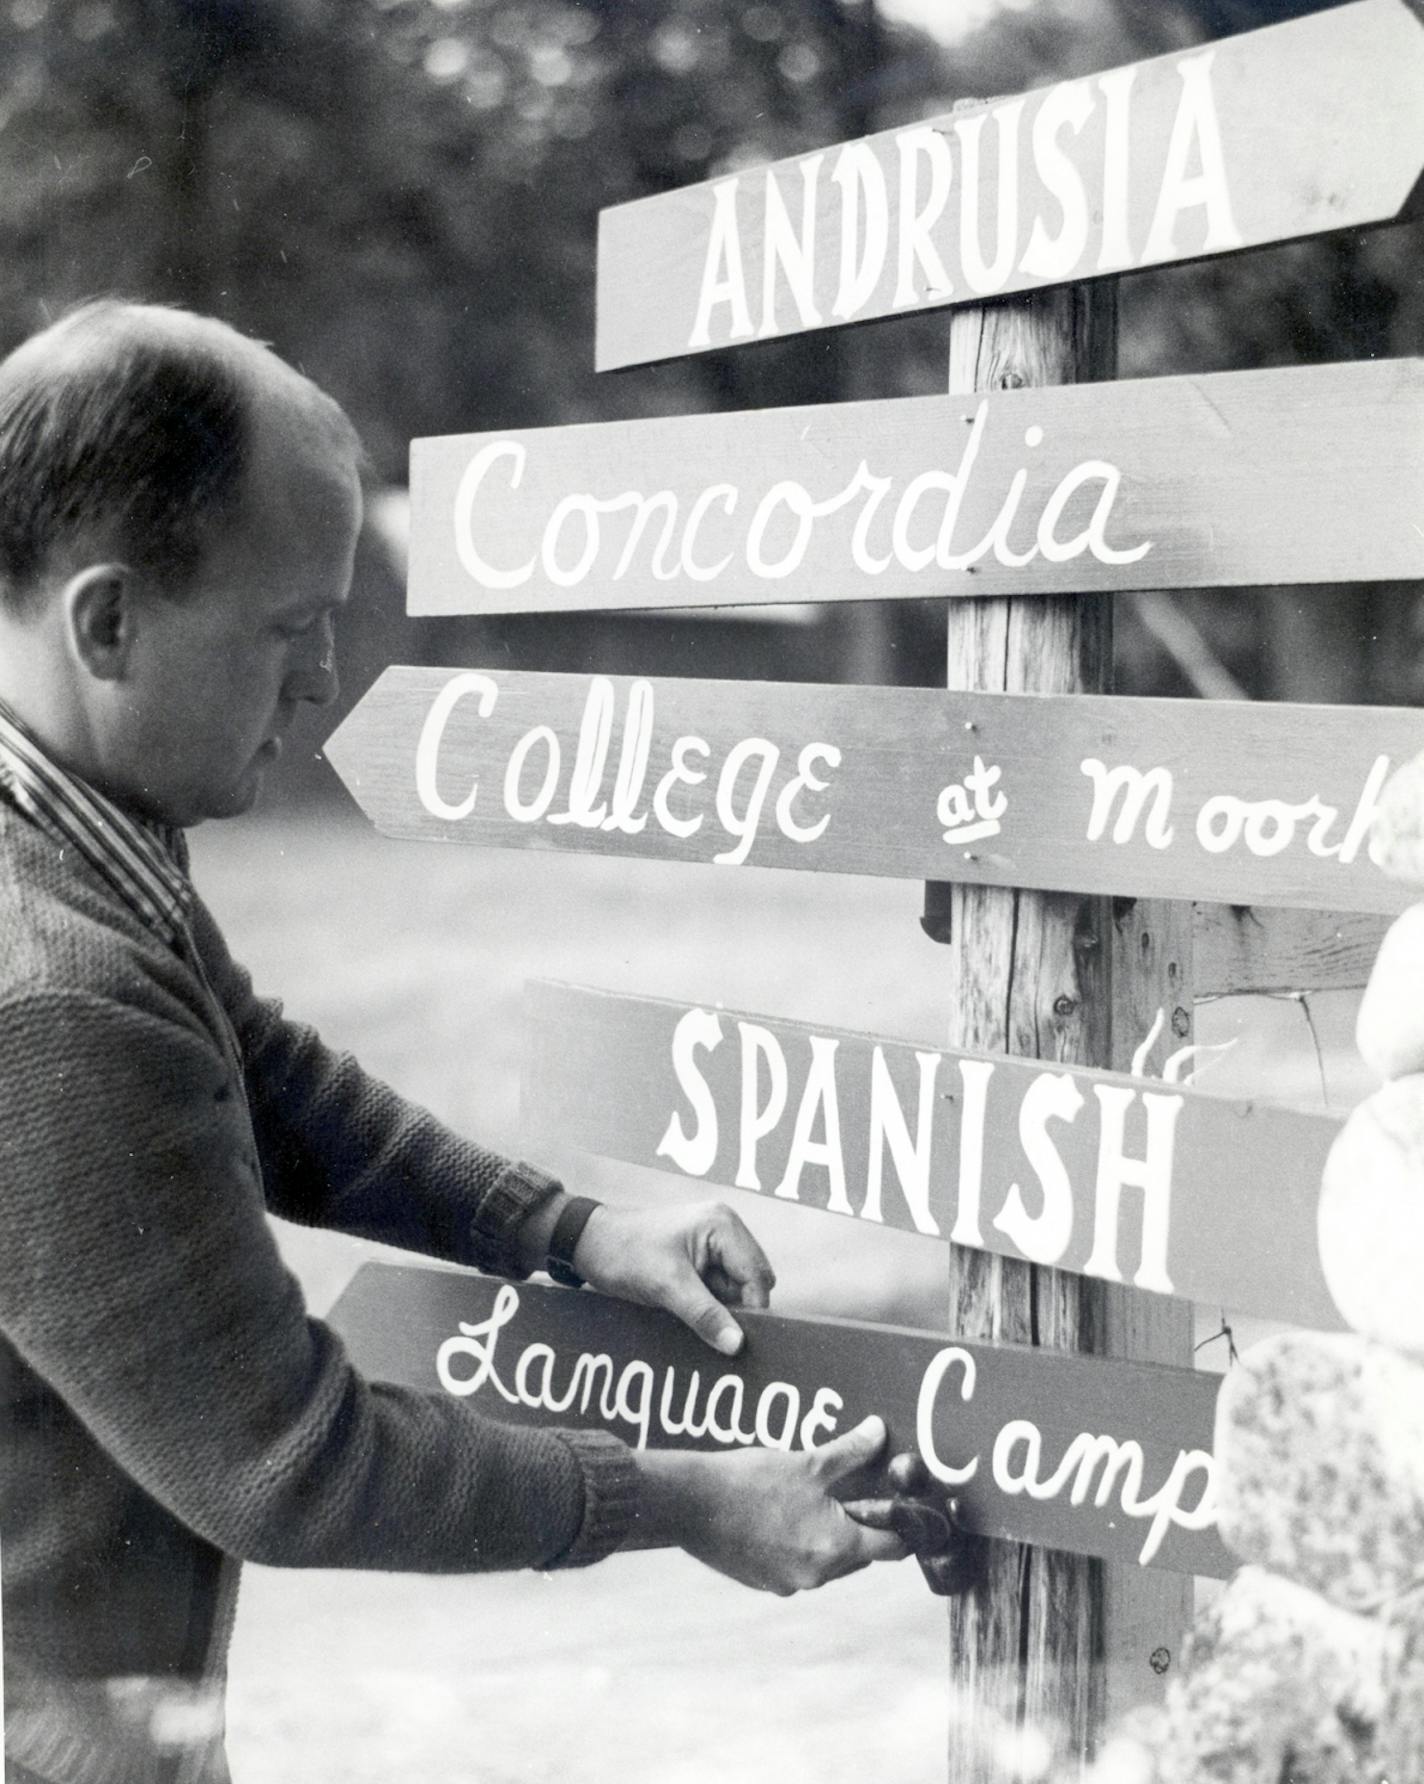 ANDRUSIA
Concordia
College at Moorh
SPANISH
Language Camp